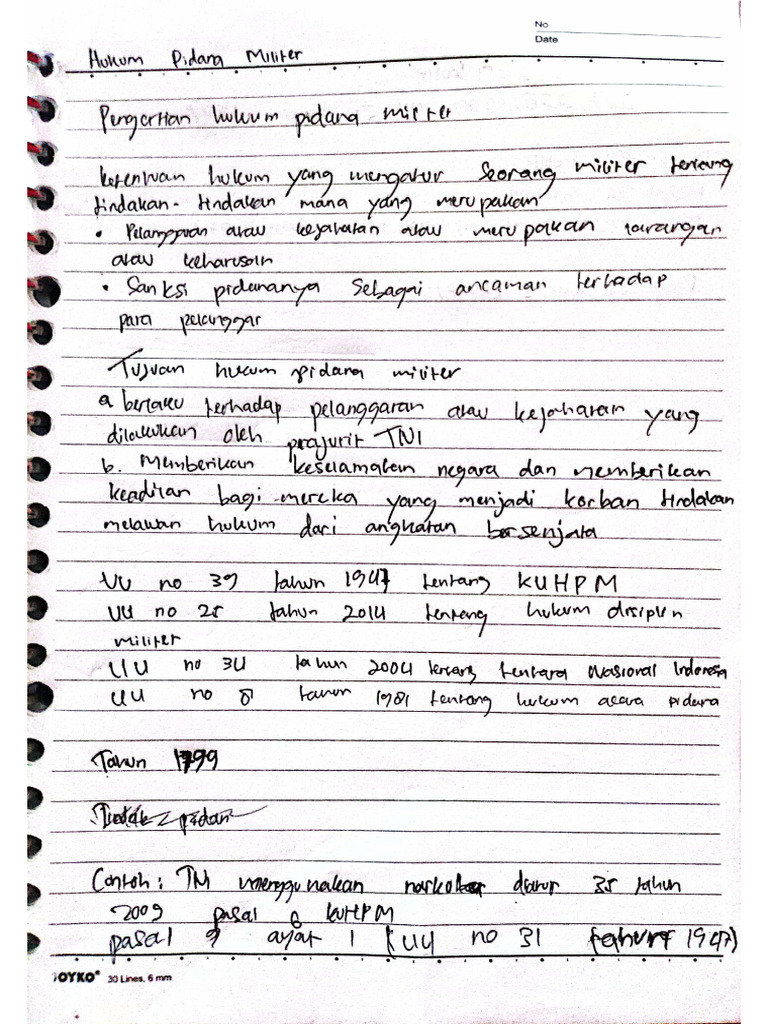 No
Date
Hukum Pidana Militer
Pengertian hukum pidana militer
ketentuan hukum yang mengatur seorang militer tentang
tindakan-tindakan mana yang merupakan
• Pelanggaran atau kejahatan atau merupakan larangan
atau keharusan
• Sanksi pidananya sebagai ancaman terhadap
para pelanggar
Tujuan hukum pidana militer
a berlaku terhadap pelanggaran atau kejahatan yang
dilakukan oleh prajurit TNI
b. Memberikan keselamatan negara dan memberikan
keadilan bagi mereka yang menjadi korban tindakan
melawan hukum dari angkatan bersenjata
UU no 39 tahun 1947 tentang KUHPM
UU no 25 tahun 2014 tentang hukum disiplin
militer
UU no 34 tahun 2004 tentang tentara Nasional Indonesia
UU no 8 tahun 1981 tentang hukum acara pidana
Tahun 1799
Contoh : TNI menggunakan diatur 35 tahun
2009 pasal 6 KUHPM
pasal 9 ayat 1 (UU no 31 tahun 1947)
JOYKO® 30 Lines, 6 mm